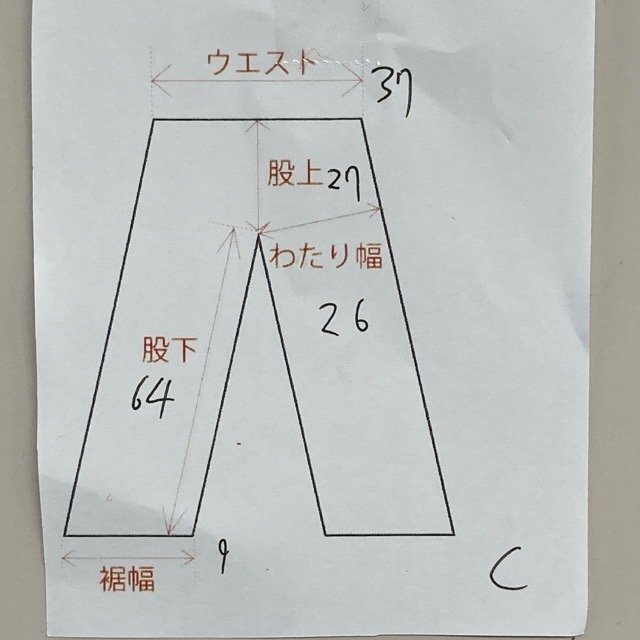 ウエスト 37
股上 27
わたり幅
26
股下
64
裾幅 9
C